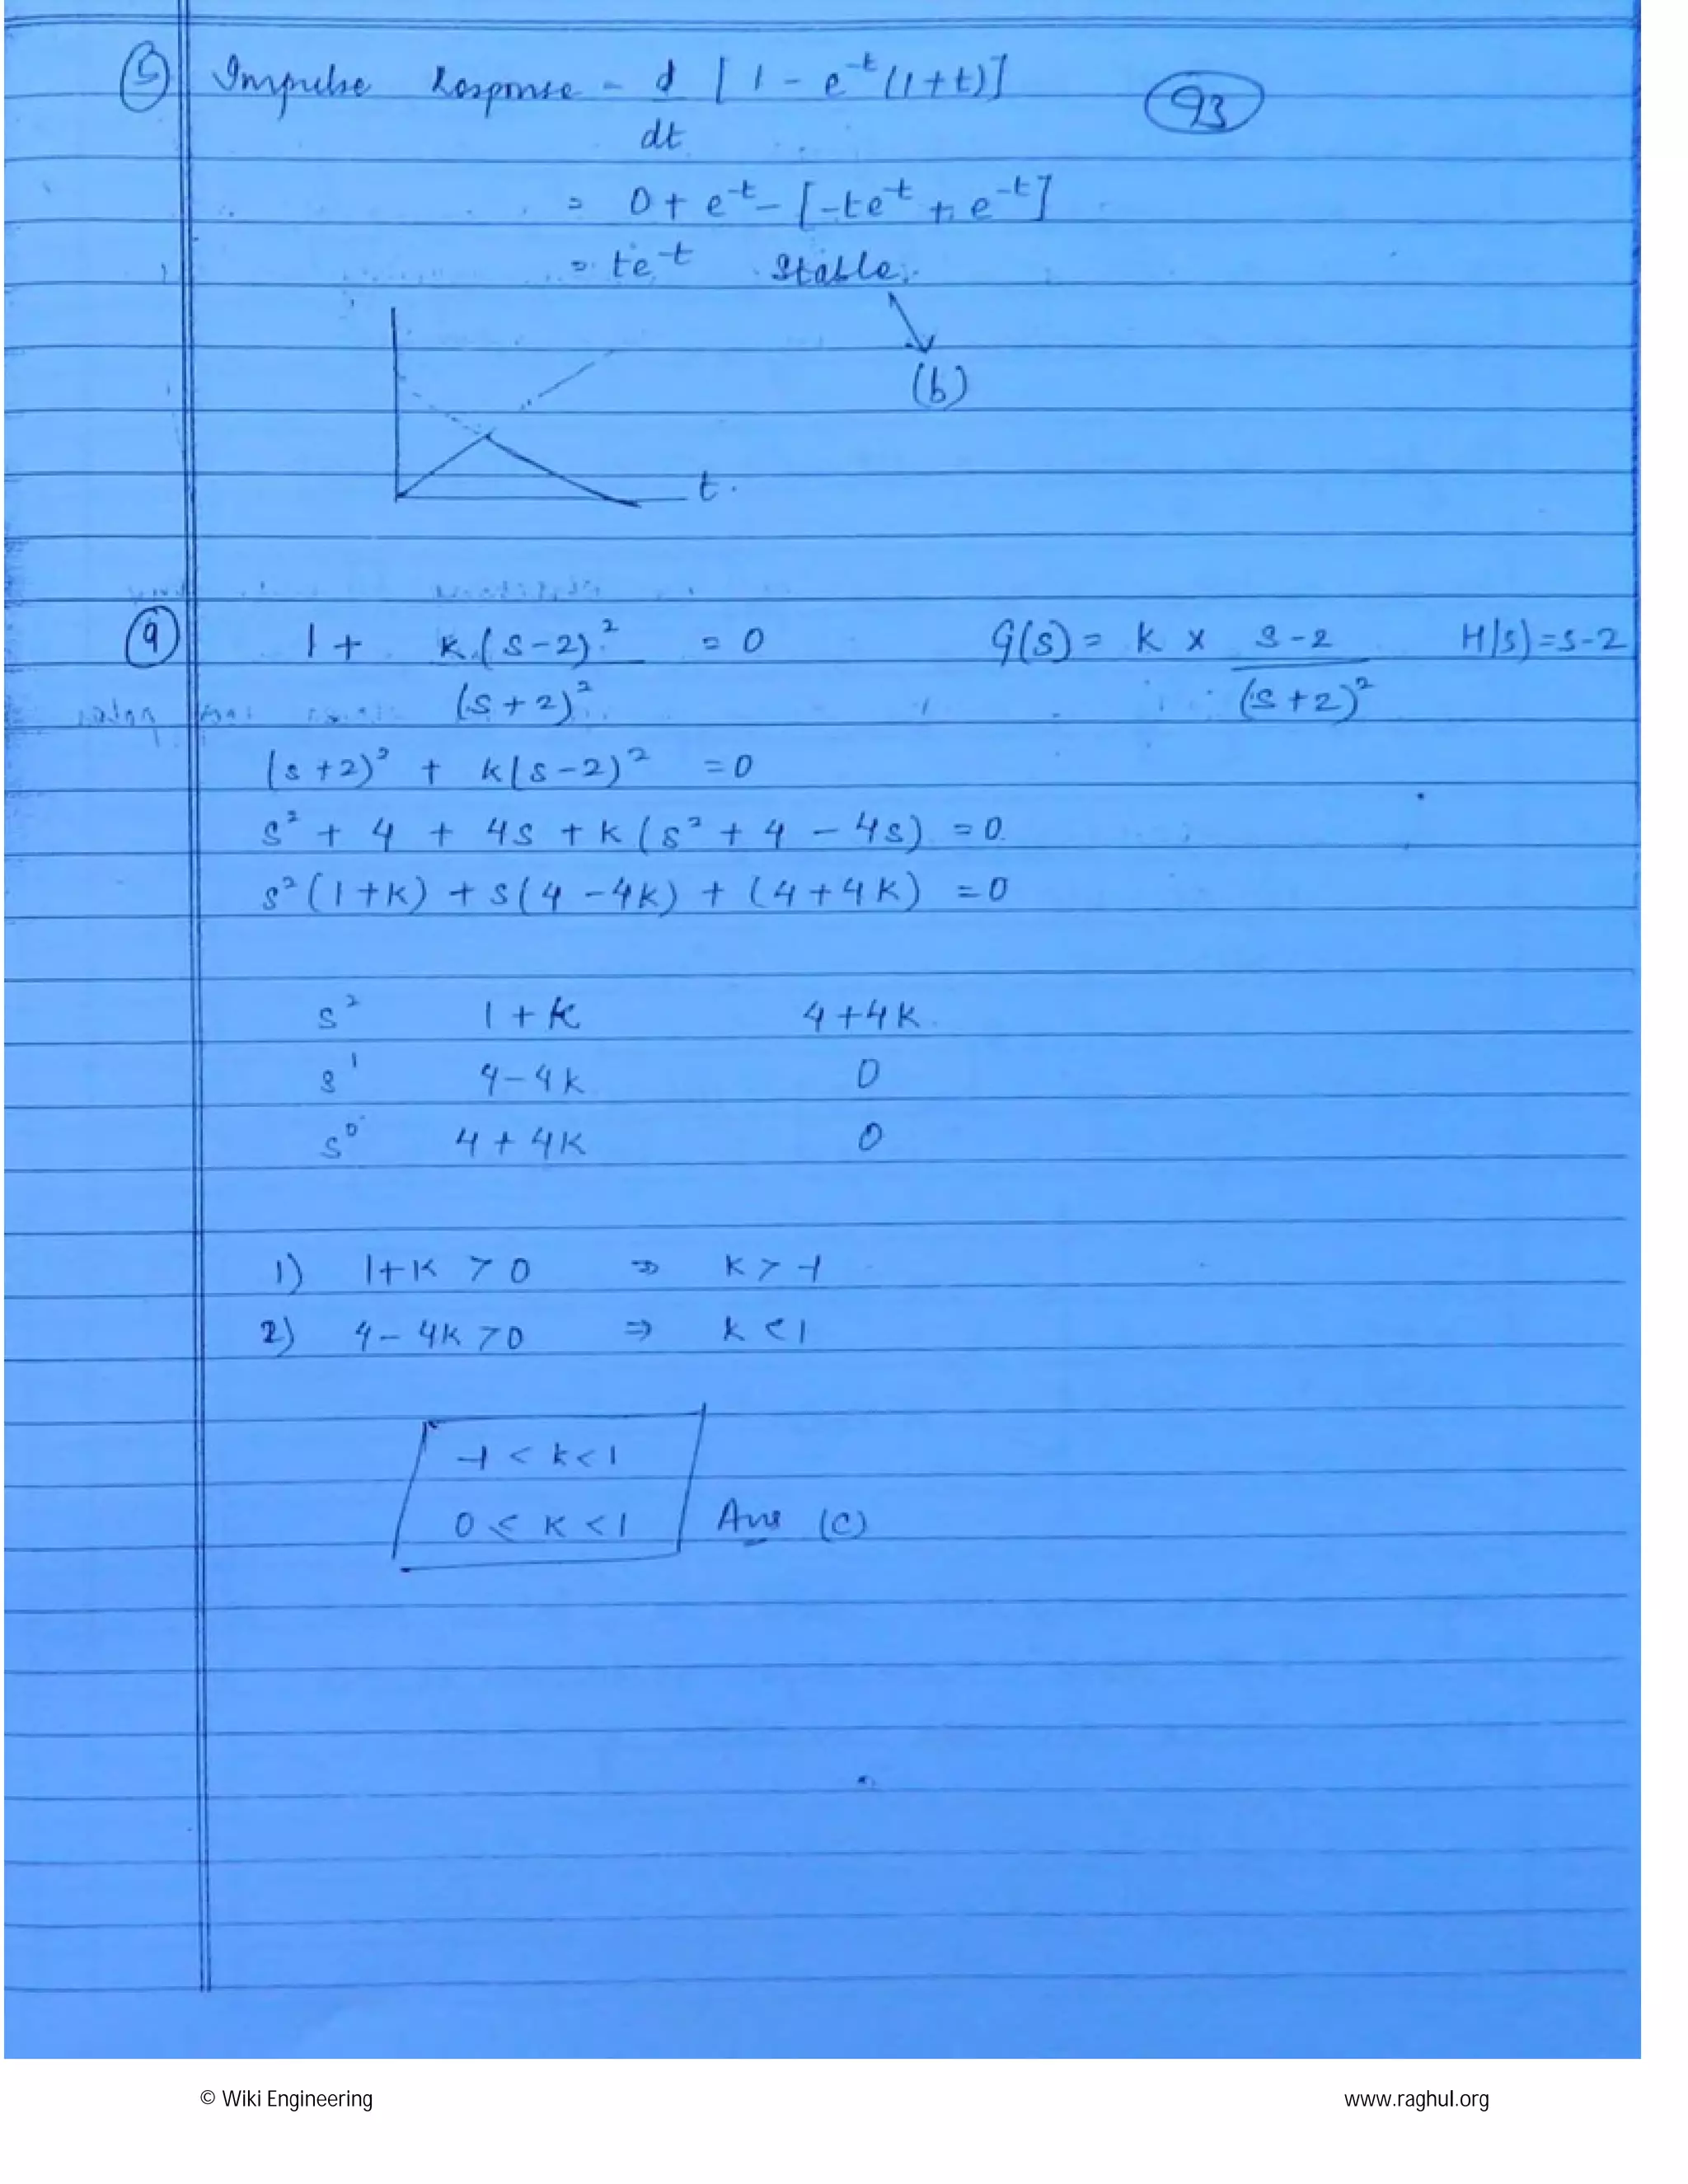 (5) Impulse Response - d [ 1 - e^-t (1+t)]
dt
93
= 0 + e^-t - [-te^-t + e^-t]
= te^-t Stable.
(b)
t.
(9) 1 + k(s-2)² = 0 G(s) = k x s-2 H(s) = s-2
(s+2)² (s+2)²
(s+2)² + k(s-2)² = 0
s² + 4 + 4s + k(s² + 4 - 4s) = 0
s²(1+k) + s(4-4k) + (4+4k) = 0
s² 1+k 4+4k
s¹ 4-4k 0
s⁰ 4+4k 0
1) 1+k > 0 ⇒ k > -1
2) 4-4k > 0 ⇒ k < 1
-1 < k < 1
0 ≤ k < 1 Ans (c)
© Wiki Engineering www.raghul.org